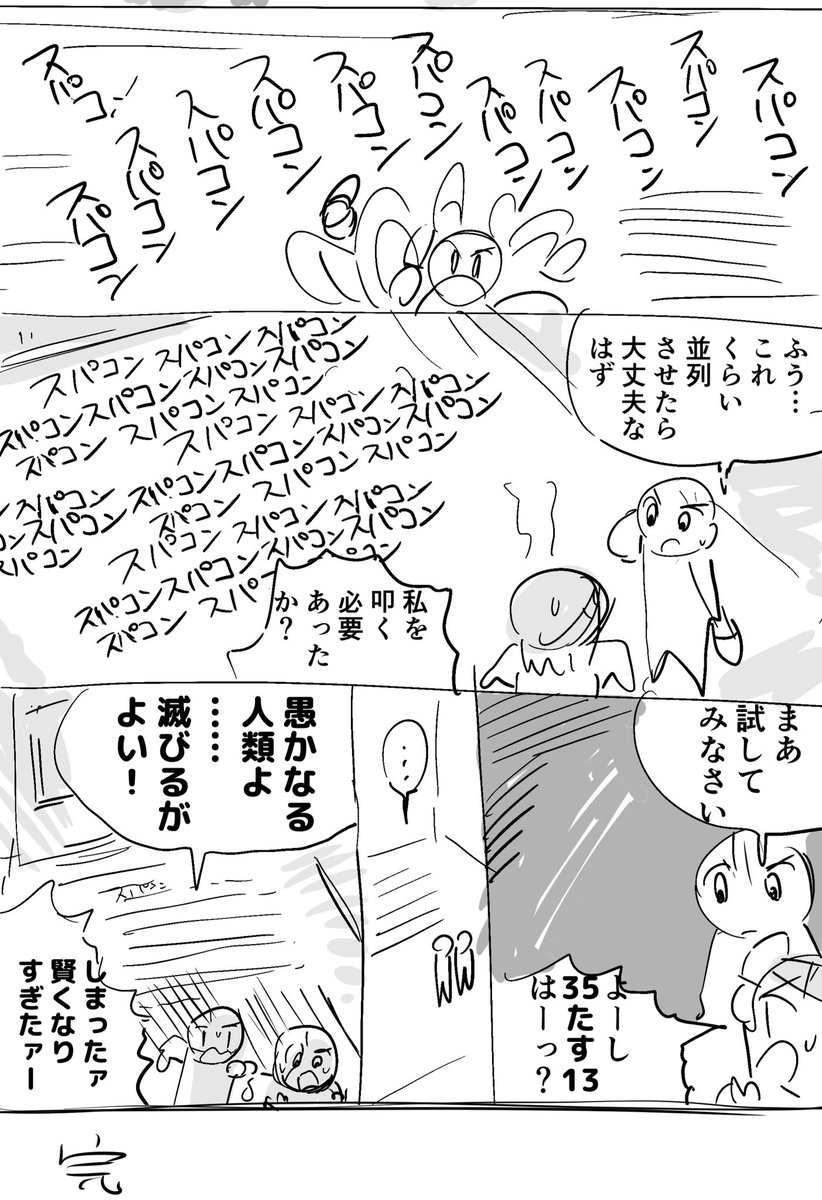 スパコン
スパコン
スパコン
スパコン
スパコン
スパコン
スパコン
スパコン
スパコン
スパコン
スパコン
スパコン
ふう…
これ
くらい
並列
させたら
大丈夫な
はず
スパコン スパコン スパコン
スパコンスパコンスパコンスパコン
スパコン スパコン スパコン
スパコン スパコン スパコン
スパコンスパコンスパコン
スパコン スパコン スパコン
スパコン
スパコン
スパコン
スパコン スパコン スパコン
スパコンスパコンスパコンスパコン
スパコン スパコン
私を
叩く
必要
あった
か？
まあ
試して
みなさい
よーし
35たす13
はーっ？
…
愚かなる
人類よ
……
滅びるが
よい！
スパコン
しまったァ
賢くなり
すぎたァー
完